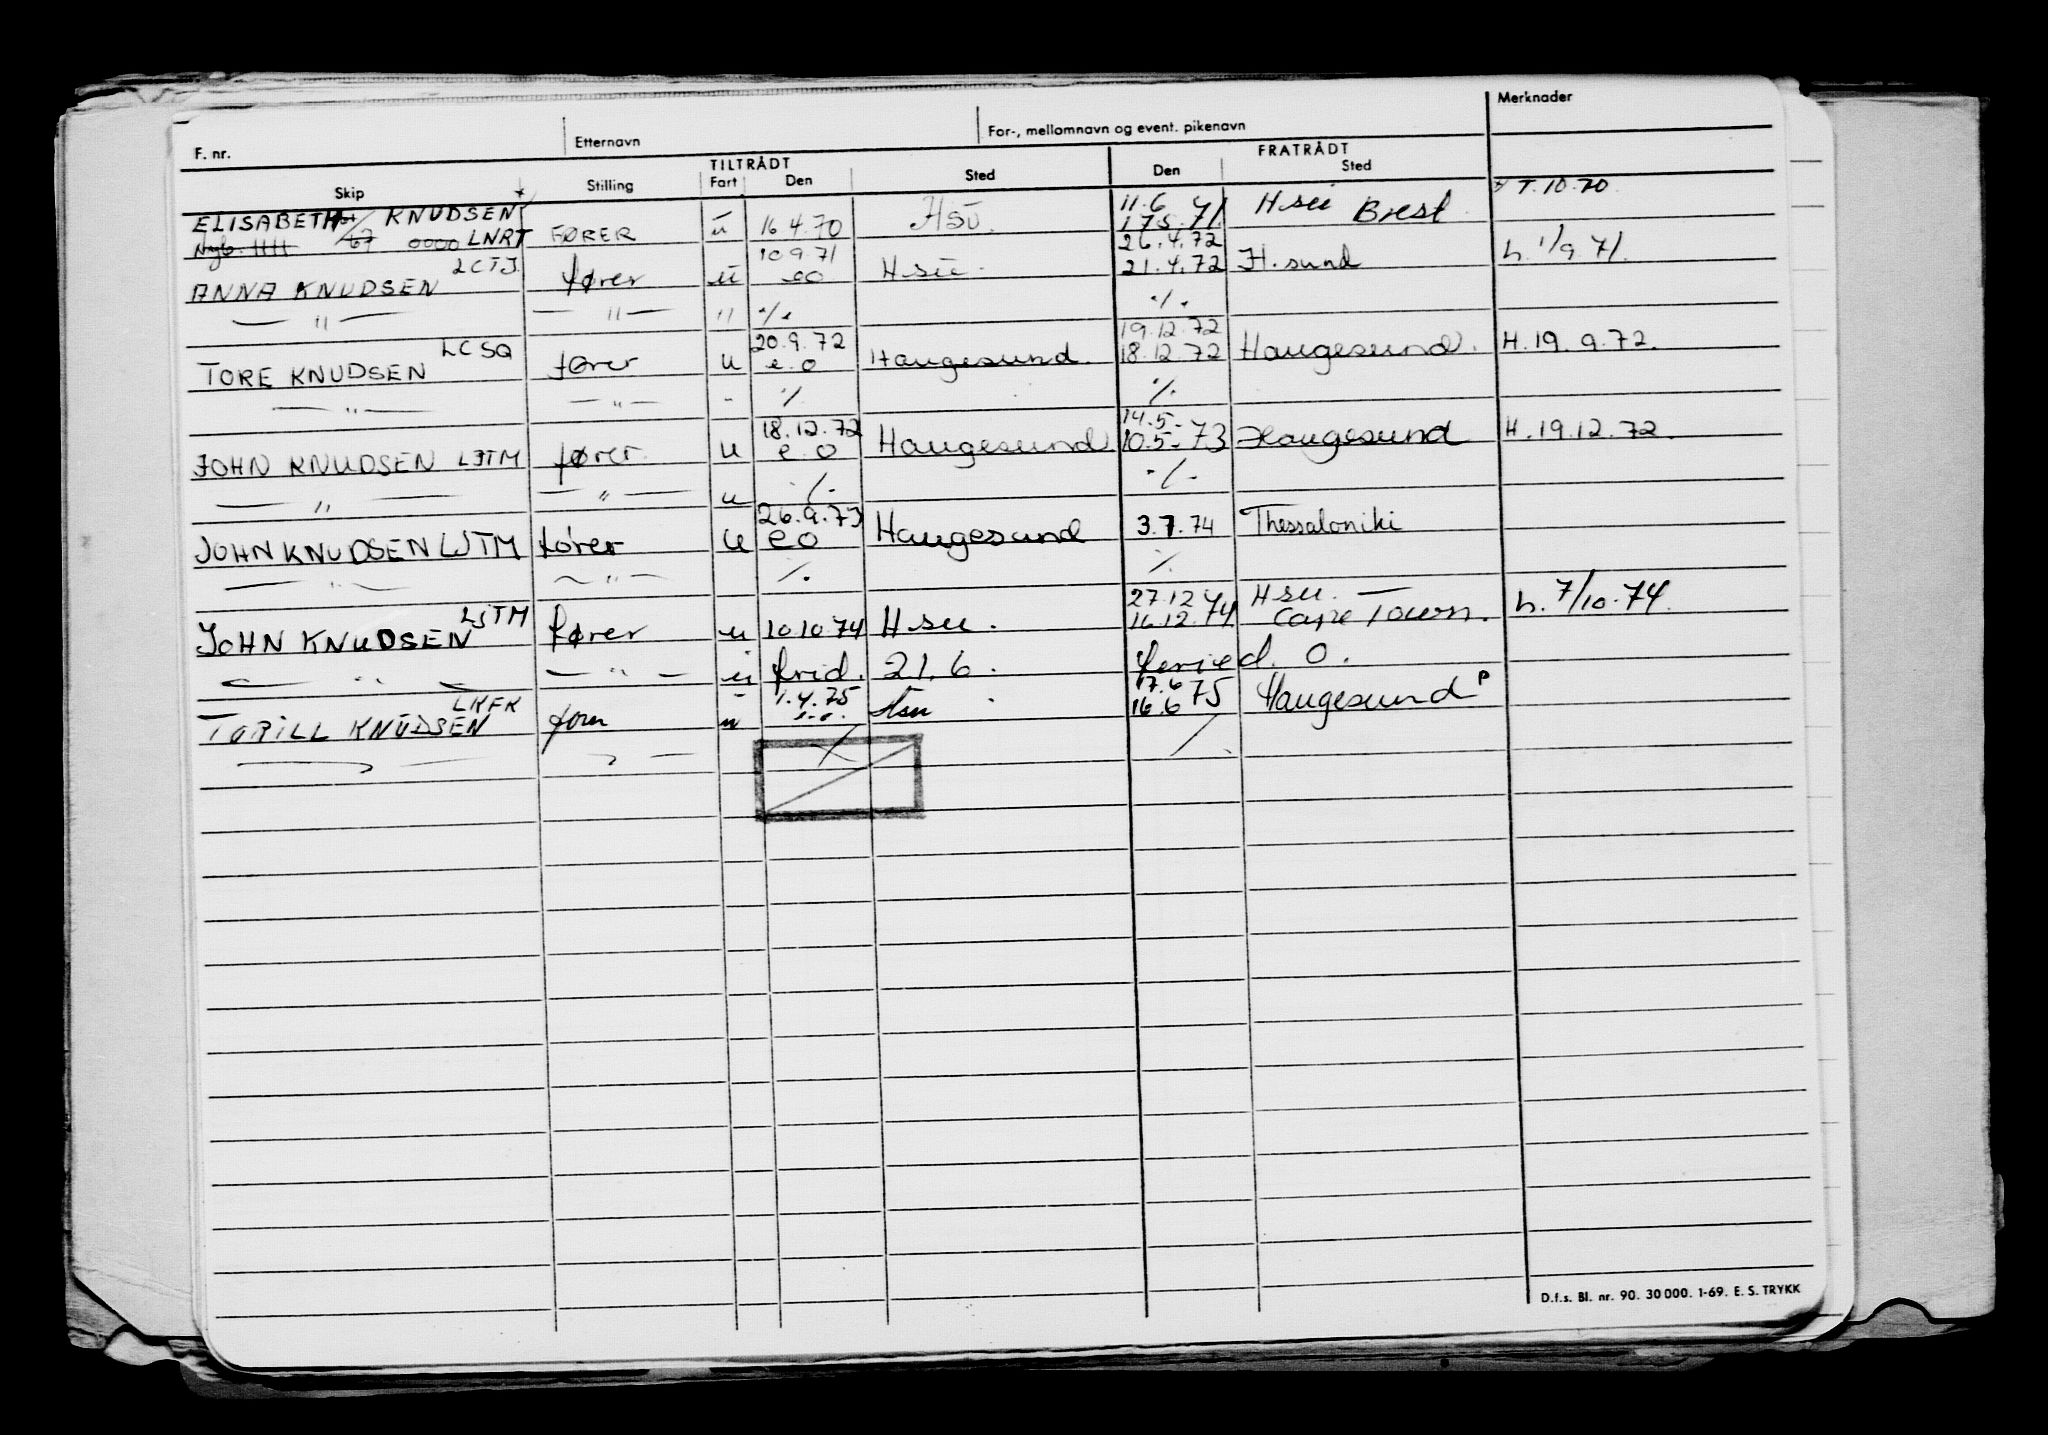 F. nr. Etternavn For-, mellomnavn og event. pikenavn Merknader
TILTRÅDT FRATRÅDT
Skip Stilling Fart Den Sted Den Sted
ELISABETH KNUDSEN 11.6 71 Hsu T.10.70
67 0000 LNRT FØRER u 16.4.70 HSU. 17.5.71. Brest
LCTJ. 10.9.71 26.4.72
ANNA KNUDSEN fører u eo Hsu. 21.4.72 H.sund h. 1/9 71.
— " — — " — " ./. ./.
LCSQ 20.9.72 19.12.72
TORE KNUDSEN fører u e.o Haugesund. 18.12.72 Haugesund. H.19.9.72.
— " — — " — - ./. ./.
18.12.72 14.5.
JOHN KNUDSEN LJTM fører u e.o Haugesund 10.5-73 Haugesund H.19.12.72.
— " — — " — u ./. ./.
26.9.73
JOHN KNUDSEN LJTM fører u eo Haugesund 3.7.74 Thessaloniki
— " — — " — ./. ./.
LJTM 27.12 74 Hsu. —
JOHN KNUDSEN fører u 10.10.74 Hsu. 16.12.74 Cape Town. h. 7/10.74.
— " — — " — u frid. 21.6. feried. 0.
LKFK 1.4.75 17.6 75
TORILL KNUDSEN fører u e.o. Hsu 16.6 Haugesund P
D.f.s. Bl. nr. 90. 30 000. 1-69. E. S. TRYKK